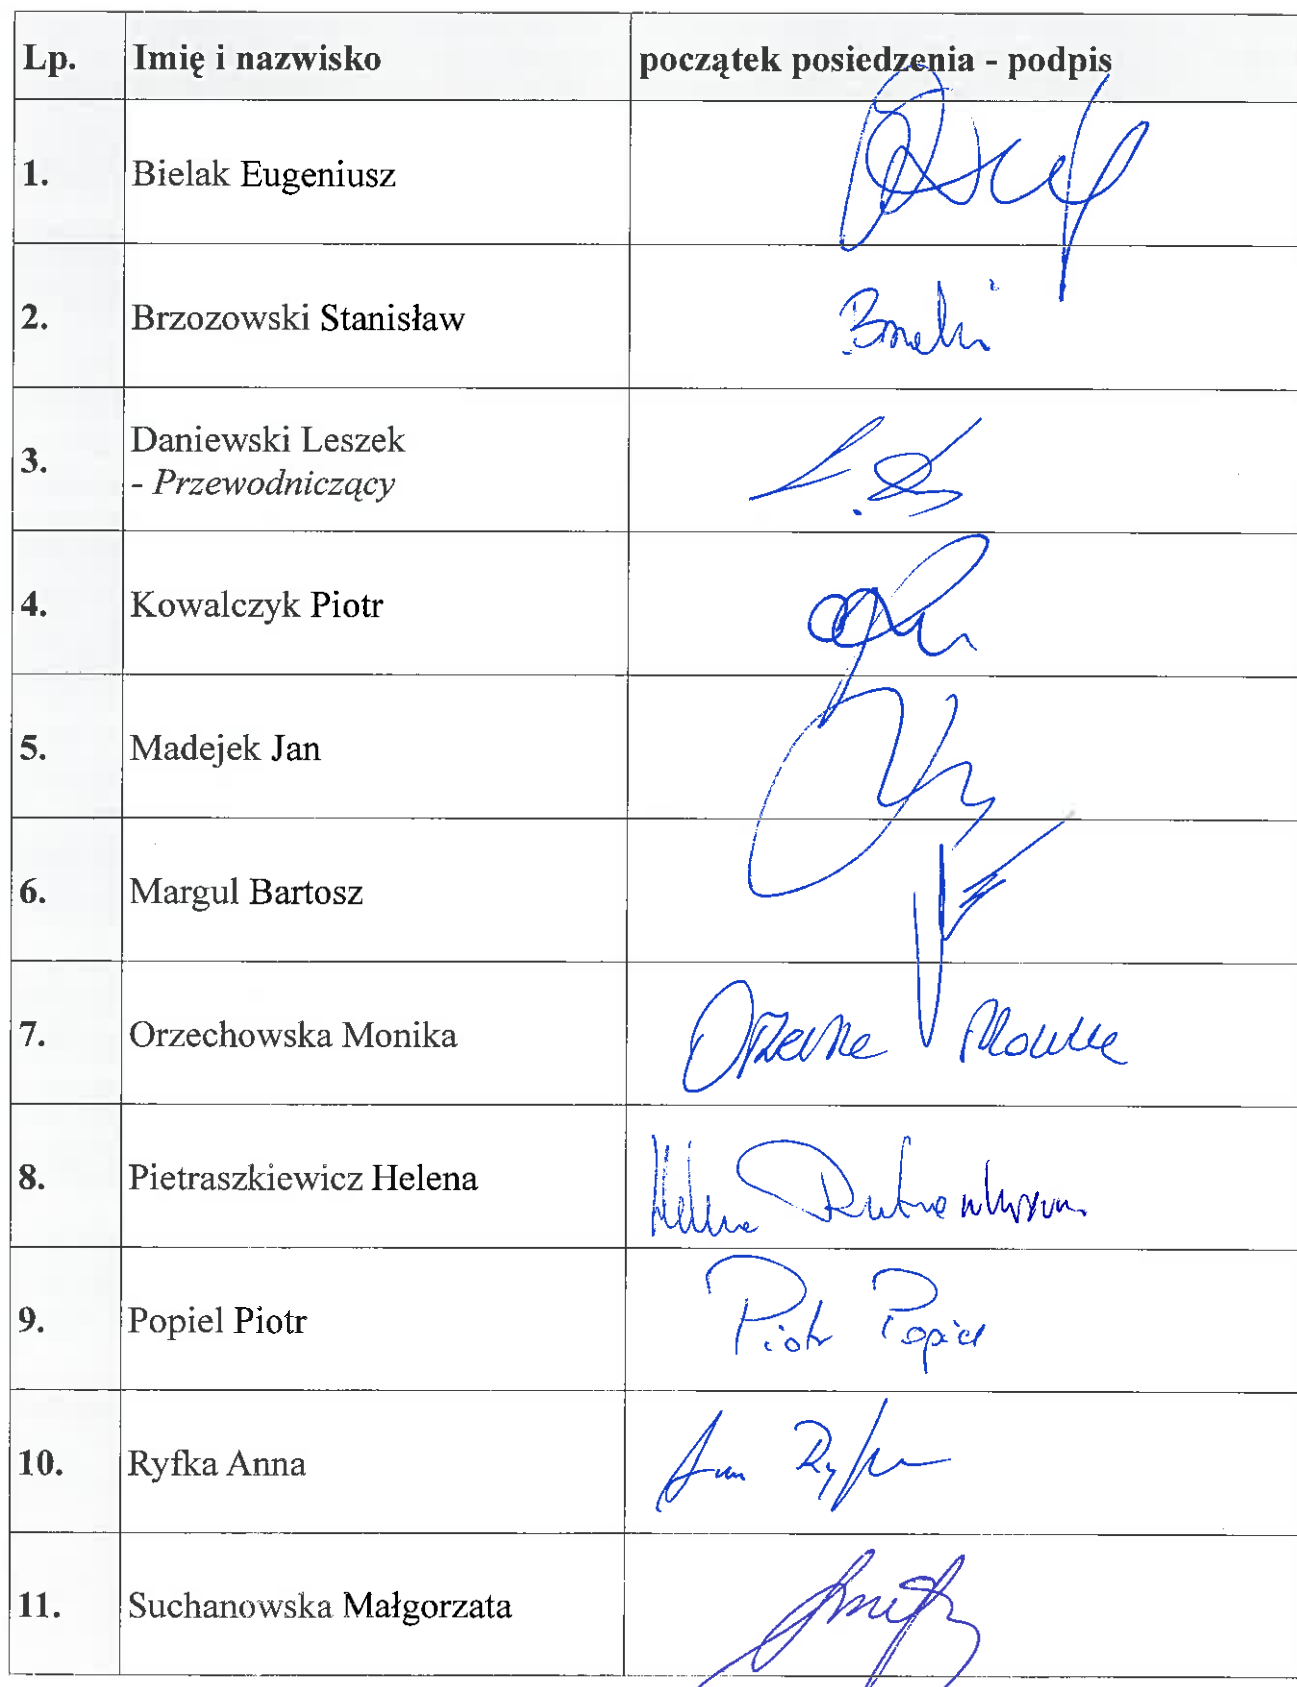 Lp. Imię i nazwisko początek posiedzenia - podpis
1. Bielak Eugeniusz
2. Brzozowski Stanisław
3. Daniewski Leszek
- Przewodniczący
4. Kowalczyk Piotr
5. Madejek Jan
6. Margul Bartosz
7. Orzechowska Monika
8. Pietraszkiewicz Helena Helena
9. Popiel Piotr Piotr Popiel
10. Ryfka Anna
11. Suchanowska Małgorzata